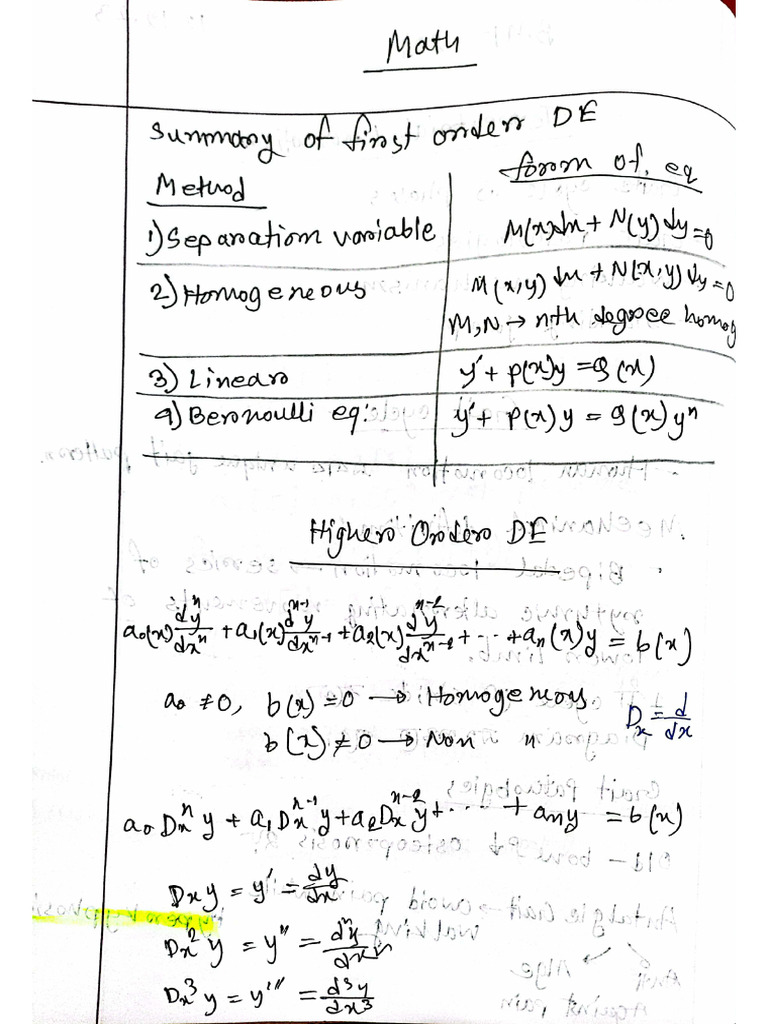 Math
Summary of first order DE
Method | form of eq
1) Separation variable | M(x)dx + N(y)dy = 0
2) Homogeneous | M(x,y)dx + N(x,y)dy = 0
M,N → nth degree homog
3) Linear | y' + p(x)y = Q(x)
4) Bernoulli eq: | y' + p(x)y = Q(x)yⁿ
Higher Order DE
a₀(x) dⁿy/dxⁿ + a₁(x) dⁿ⁻¹y/dxⁿ⁻¹ + a₂(x) dⁿ⁻²y/dxⁿ⁻² + ... + aₙ(x)y = b(x)
a₀ ≠ 0, b(x) = 0 → Homogeneous
b(x) ≠ 0 → Non "
Dₓ = d/dx
a₀Dₓⁿy + a₁Dₓⁿ⁻¹y + a₂Dₓⁿ⁻²y + .... + aₙy = b(x)
Dₓy = y' = dy/dx
Dₓ²y = y'' = dⁿy/dxⁿ
Dₓ³y = y''' = d³y/dx³